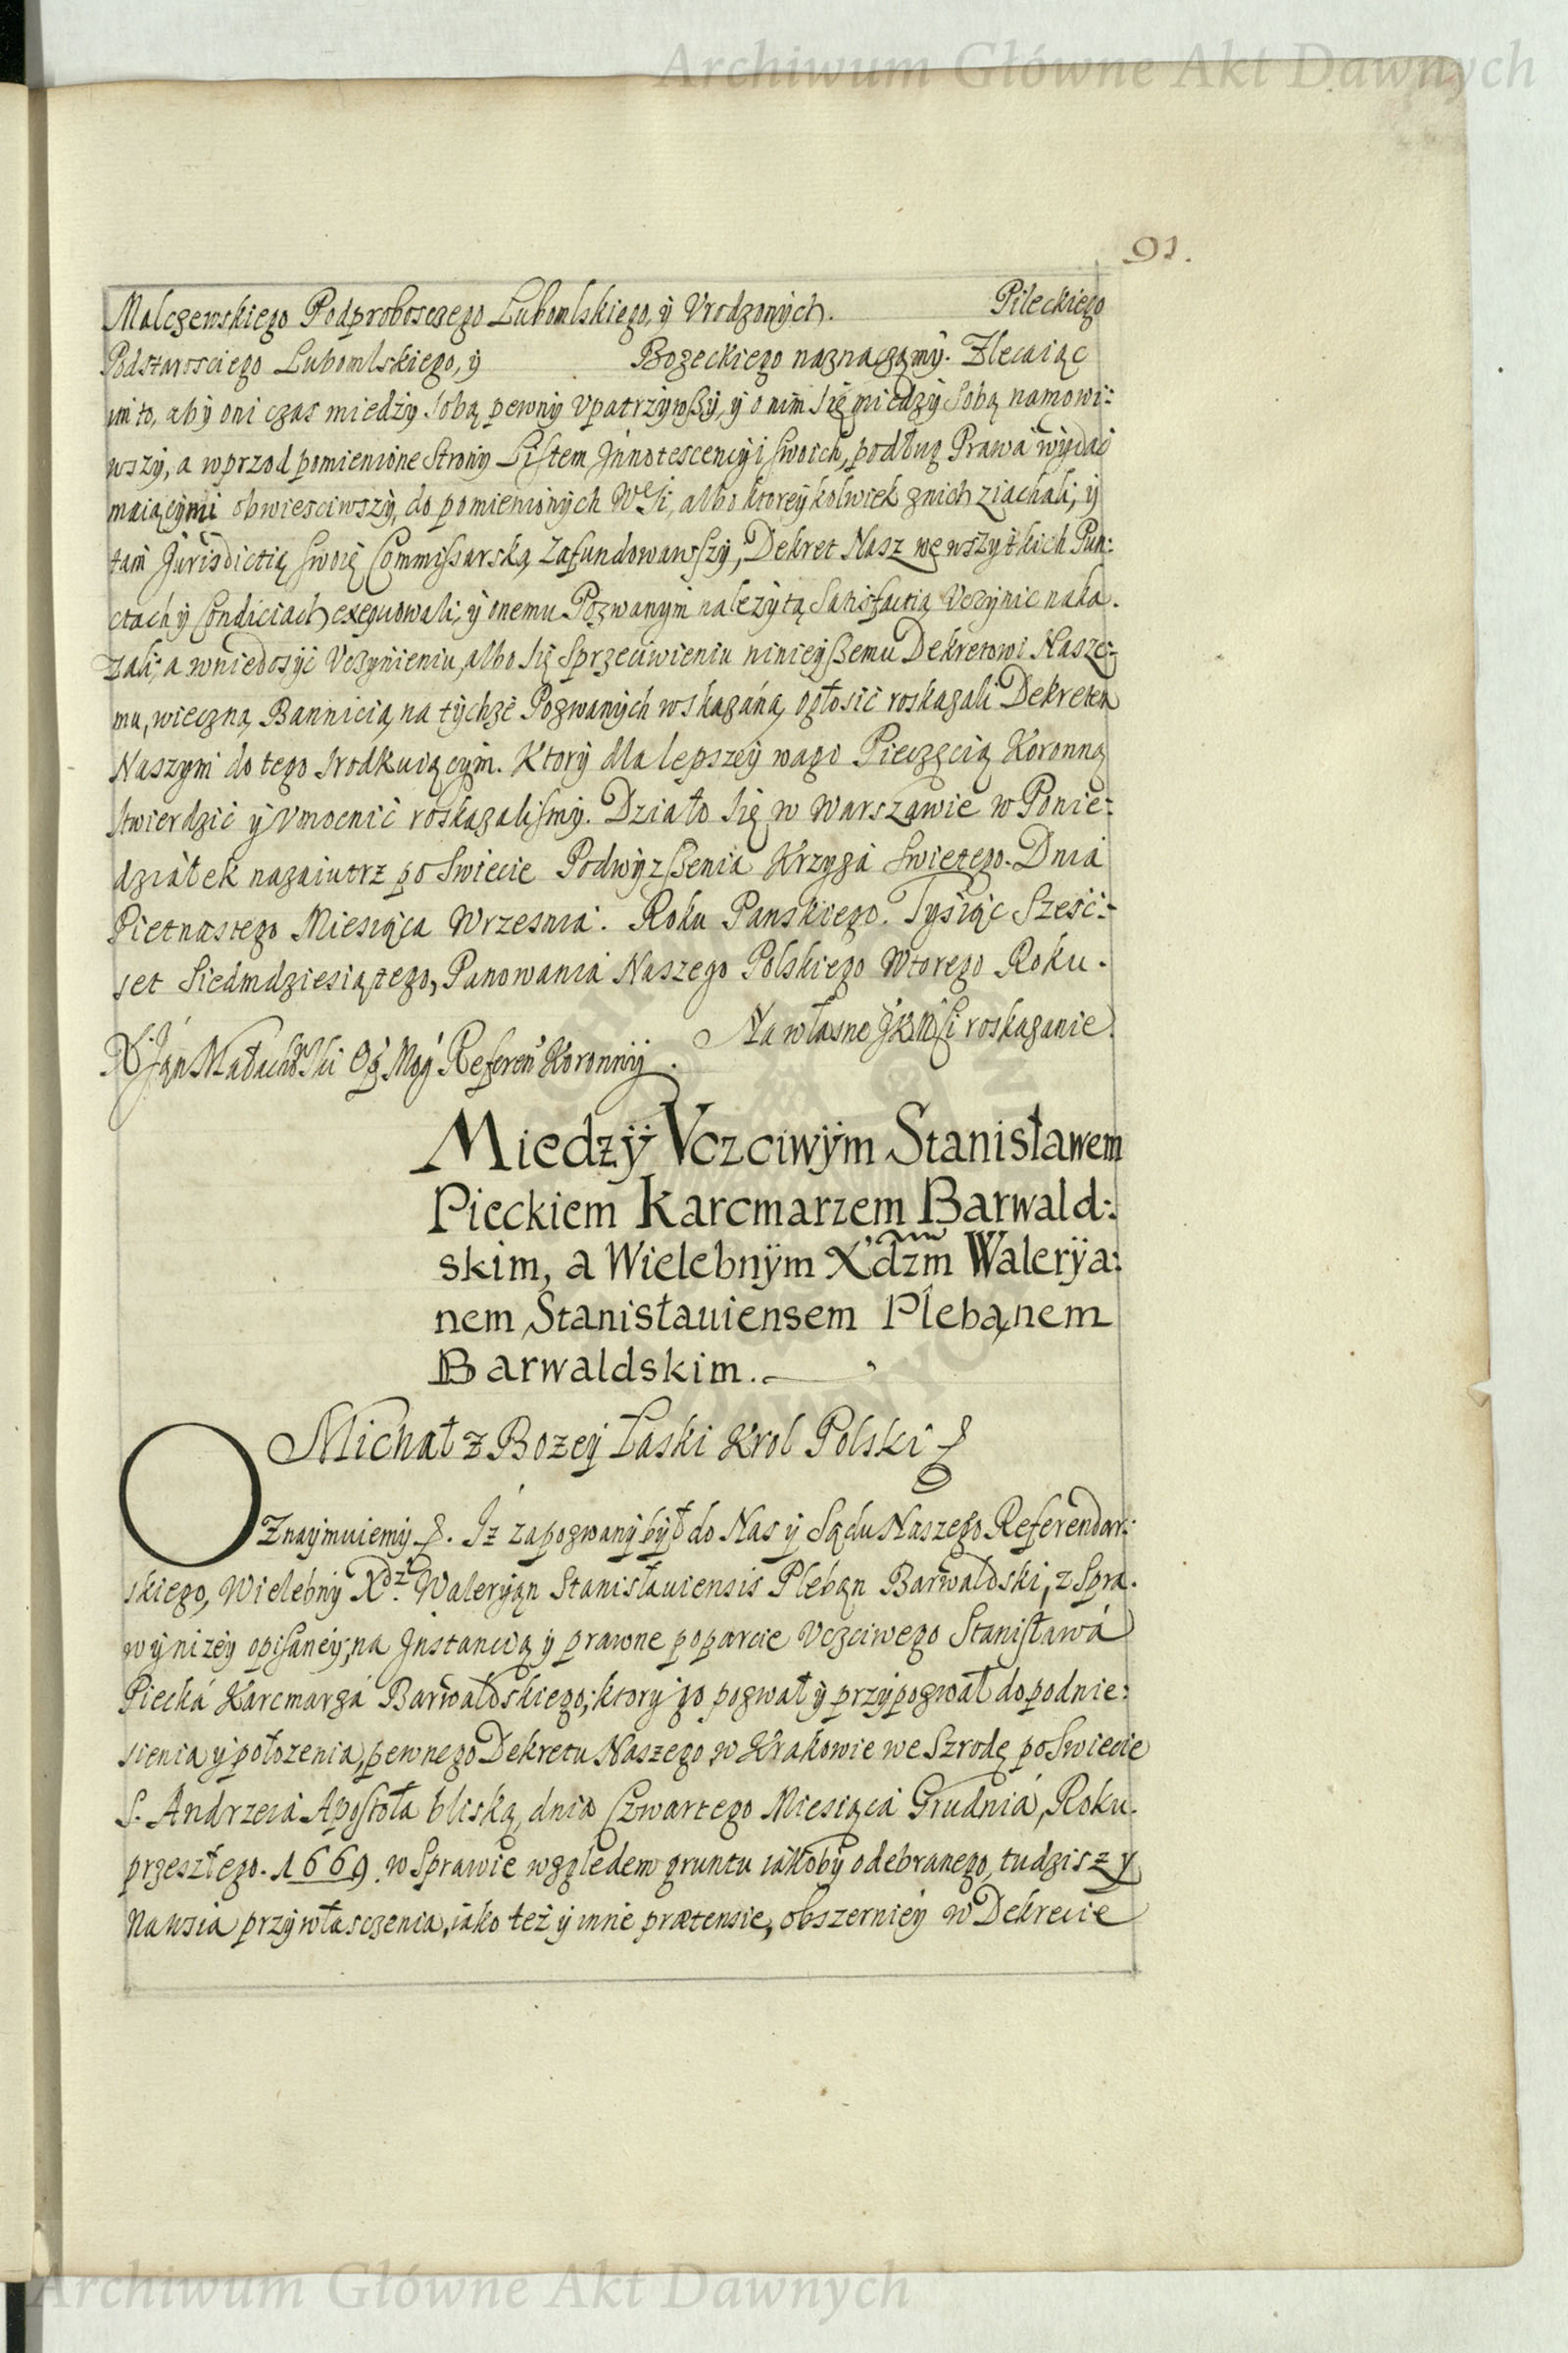 Archiwum Główne Akt Dawnych
91.
Malczewskiego Podproboszczego Lubomlskiego, ÿ Vrodzonÿch. Pileckiego
Podstarosciego Lubomlskiego, ÿ Bozeckiego naznaczamÿ. Zlecaiąc
im to, abÿ oni czas miedzÿ sobą pewnÿ vpatrzÿwszÿ, ÿ o nim się miedzÿ sobą namowi:
wszÿ, a wprzod pomienione Stronÿ Listem Innotescencÿi swoich, podług Prawa wÿdać
maiącÿmi obwiesciwszÿ, do pomienionÿch Wsi, albo ktoreÿkolwiek znich ziachali; ÿ
tam Jurisdictią swoię Commissarską zafundowawszÿ, Dekret Nasz we wszÿtkich Pun:
ctach ÿ Conditiach exequowali; ÿ onemu Pozwanÿm należÿtą Satisfactią Vczÿnic naka.
zali; a wniedosÿć Vczÿnieniu, albo się Sprzeciwieniu ninieÿszemu Dekretowi Nasze:
mu, wieczną Bannicią, na tÿchże Pozwanÿch wskazáną, ogłosić roskazali Dekretem
Naszÿm do tego srodkuiącÿm. Ktorÿ dla lepszeÿ wagi Pieczęcią Koronną
stwierdzić ÿ Vmocnić roskazalismÿ. Działo się w Warszawie w Ponie:
działek nazaiutrz po Swiecie Podwÿzszenia Krzyzá Swietego. Dniá
Pietnastego Miesiąca Wrzesniá. Roku Panskiego. Tysiąc Szesć:
set Siedmdziesiątego, Panowaniá Naszego Polskiego Wtorego Roku.
Na własne JKMSci roskazanie.
X. Jan Małachowski Opá Mogi Referend Koronnÿ.
Miedzÿ Vczciwÿm Stanisławem
Pieckiem Karcmarzem Barwald:
skim, a Wielebnÿm X'dzm Walerÿa:
nem Stanisłauiensem Plebąnem
Barwaldskim.
Michał z Bozeÿ Łaski Krol Polski
OZnaÿmuiemÿ. Iż zapozwanÿ bÿł do Nas ÿ Sądu Naszego Referendar:
skiego, Wielebnÿ Xdz Walerÿąn Stanisłauiensis Plebąn Barwaldski, z Spra.
wÿ nizeÿ opisaneÿ, na Jnstancią ÿ prawne poparcie Vczciwego Stanisławá
Pieckà Karcmarzá Barwaldskiego; ktorÿ go pozwał ÿ przÿpozwał do podnie:
sienia ÿ położenia, pewnego Dekretu Naszego w Krakowie we Szrodę po Swiecie
S. Andrzeiá Apostoła bliską, dnia Czwartego Miesiącá Grudniá, Roku.
przeszłego. 1669. w Sprawie względem gruntu iákobÿ odebranego, tudzisz y
Nawsia przÿwłasczenia, iako też ÿ inne prætensie, obszernieÿ w Dekrecie
Archiwum Główne Akt Dawnych